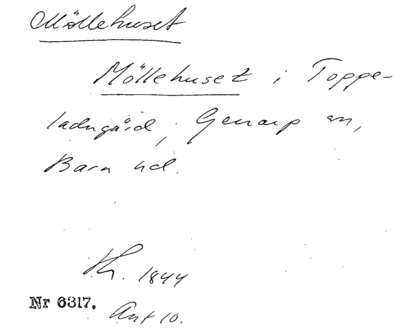 Möllehuset
Möllehuset i Toppe-
ladugård, Genarp sn,
Bara hd.
Kh. 1844
Nr 6317.
Ant 10.